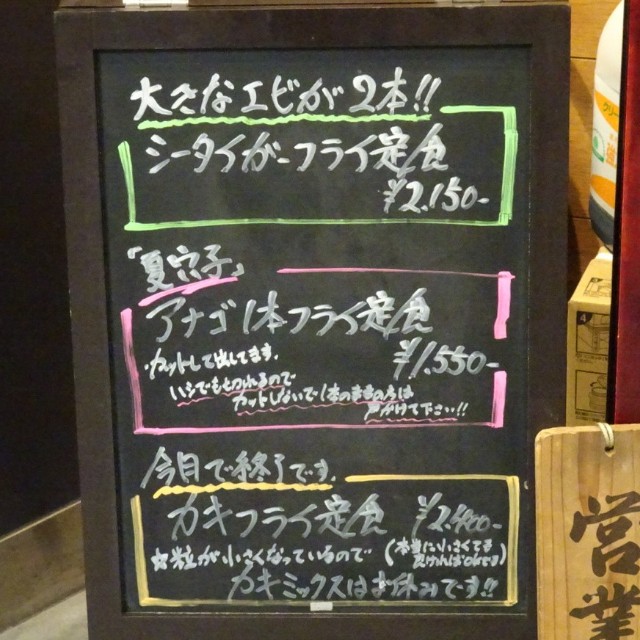 大きなエビが2本!!
シータイガーフライ定食
¥2.150-
「夏穴子」
アナゴ1本フライ定食
¥1.550-
カットして出してます。
いシでも切れるので
カットしないで1本のままの方は
声かけて下さい!!
今月で終了です。
カキフライ定食 ¥2.400-
☆粒が小さくなっているので (本当に小さくても
よければOKです)
カキミックスはお休みです!!
営業
4